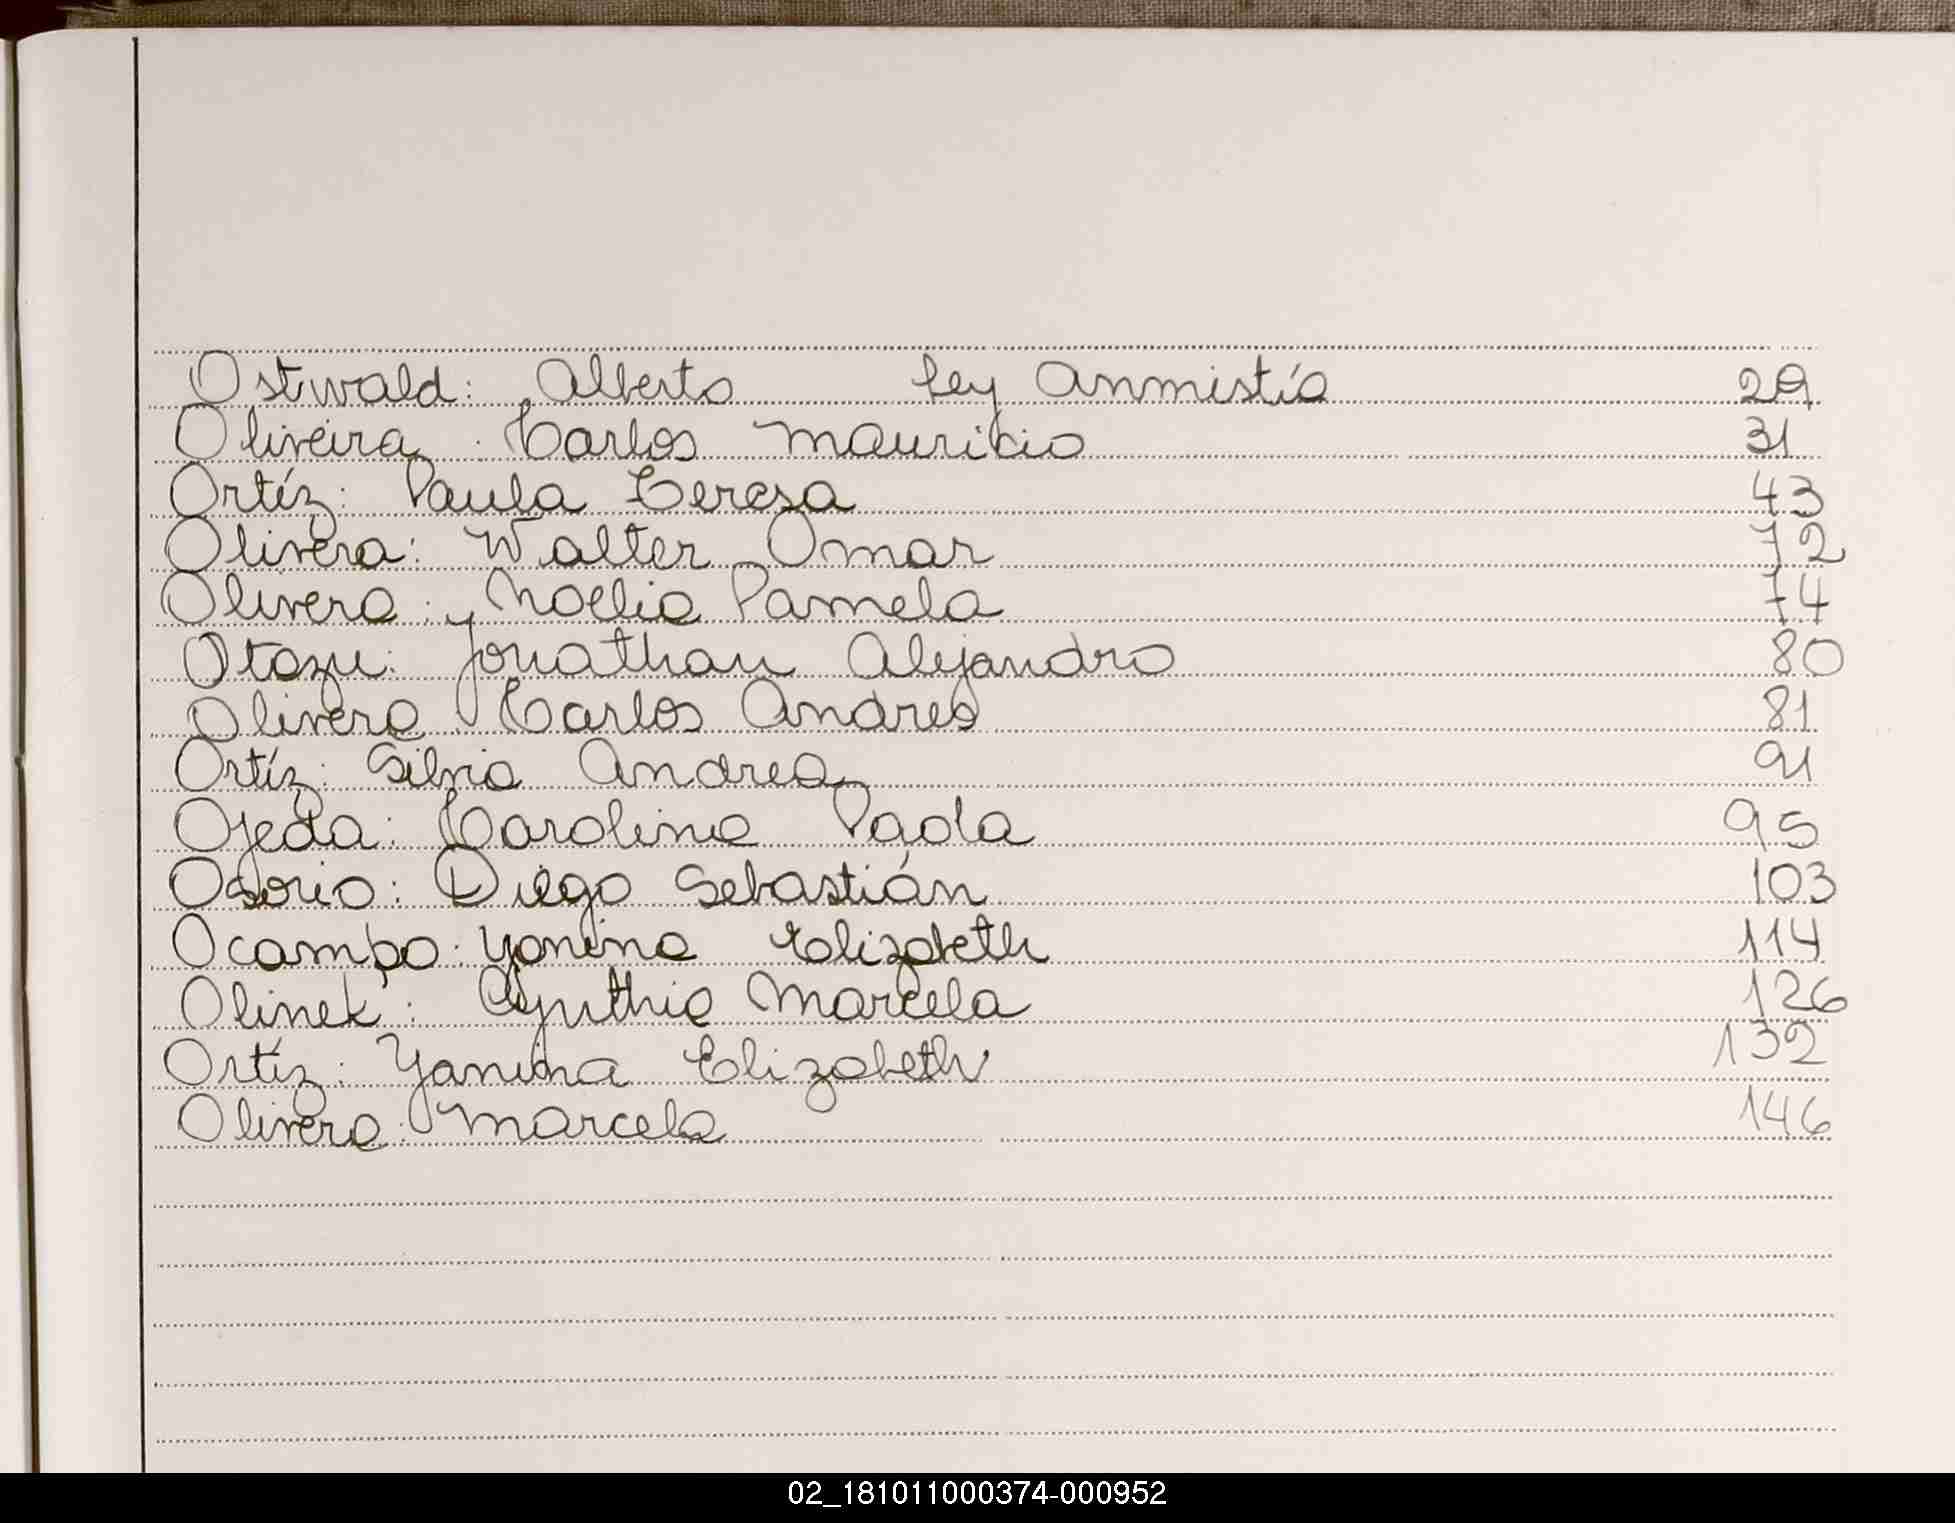 Ostwald: Alberto Ley Anmistía 29
Oliveira: Carlos Mauricio 31
Ortíz: Paula Teresa 43
Olivera: Walter Omar 72
Olivera: Noelia Pamela 74
Otazu: Jonathan Alejandro 80
Olivera Carlos Andres 81
Ortíz: Silvia Andrea 91
Ojeda: Carolina Paola 95
Osorio: Diego Sebastián 103
Ocampo: Yanina Elizabeth 114
Olinek: Cynthia Marcela 126
Ortíz: Yanina Elizabeth 132
Olivera: Marcela 146
02_181011000374-000952